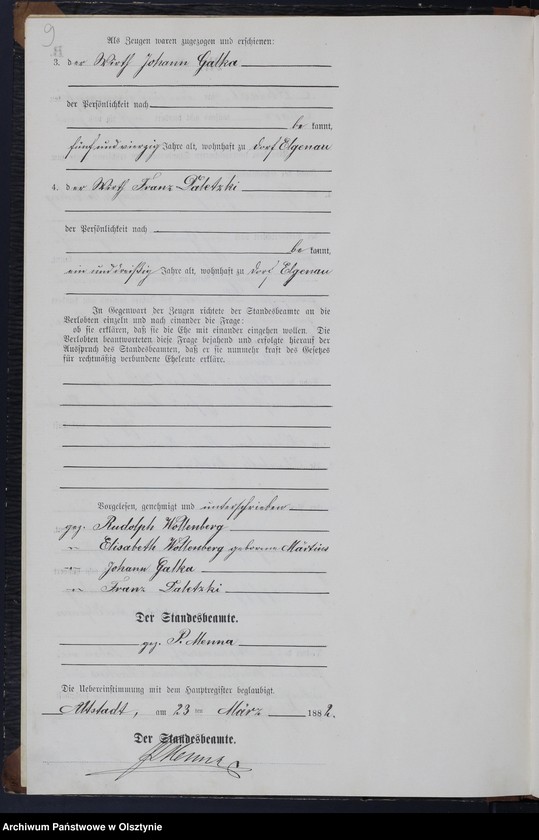 9
Als Zeugen waren zugezogen und erschienen:
3. der Wirth Johann Galka
der Persönlichkeit nach
be kannt,
fünfundvierzig Jahre alt, wohnhaft zu Dorf Elgenau
4. der Wirth Franz Paletzki
der Persönlichkeit nach
be kannt,
einunddreißig Jahre alt, wohnhaft zu Dorf Elgenau
In Gegenwart der Zeugen richtete der Standesbeamte an die
Verlobten einzeln und nach einander die Frage:
ob sie erklären, daß sie die Ehe mit einander eingehen wollen. Die
Verlobten beantworteten diese Frage bejahend und erfolgte hierauf der
Ausspruch des Standesbeamten, daß er sie nunmehr kraft des Gesetzes
für rechtmäßig verbundene Eheleute erkläre.
Vorgelesen, genehmigt und unterschrieben
gez. Rudolph Woltenberg
" Elisabeth Woltenberg geborene Märtins
" Johann Galka
" Franz Paletzki
Der Standesbeamte.
gez. P. Menna
Die Uebereinstimmung mit dem Hauptregister beglaubigt.
Altstadt, am 23 ten März 1882.
Der Standesbeamte.
P Menna
Archiwum Państwowe w Olsztynie